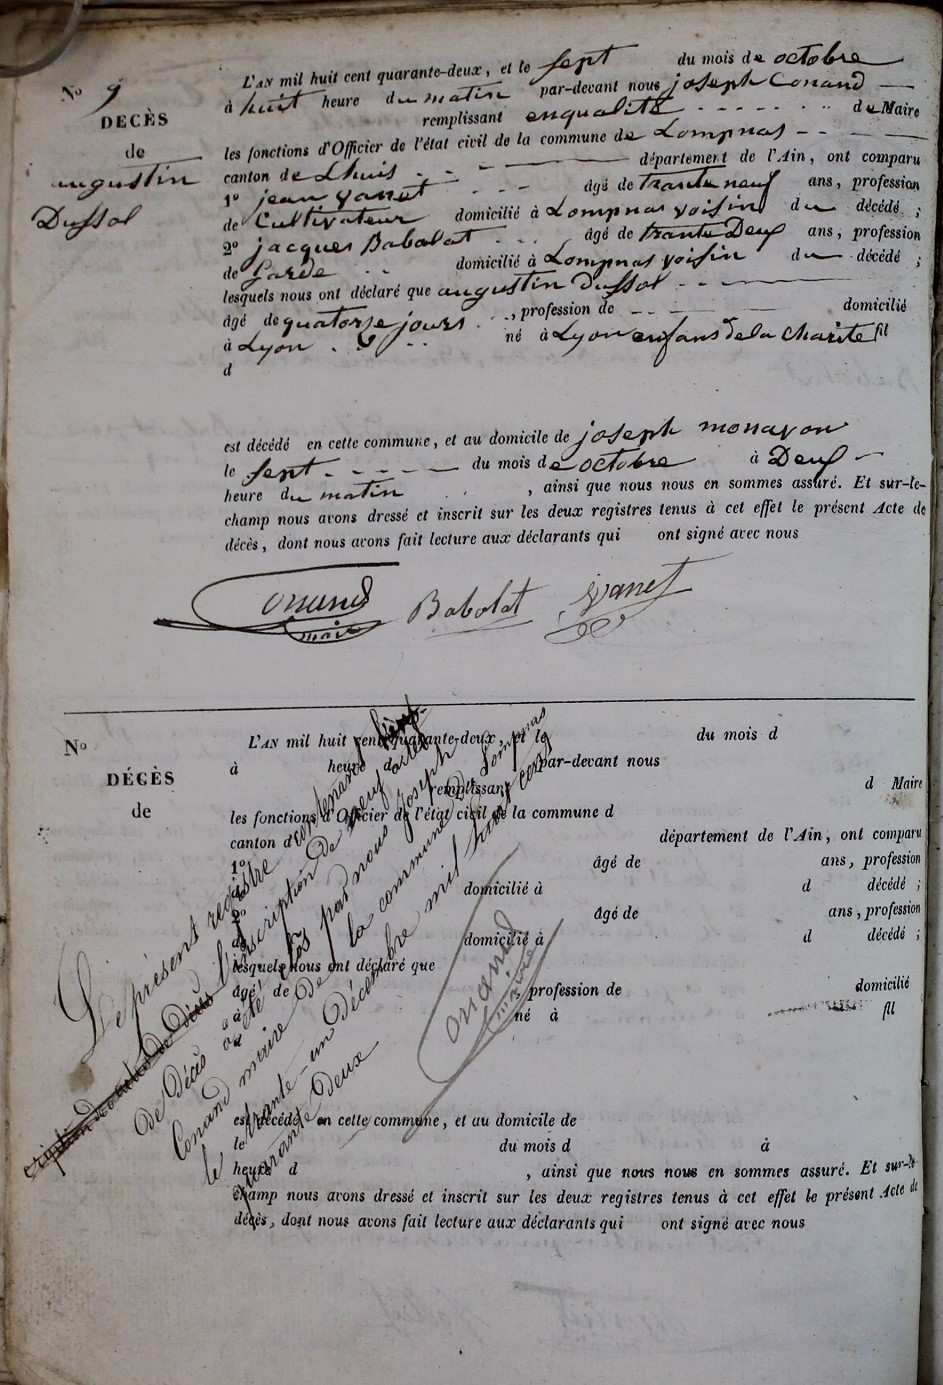 N° 9
DÉCÈS
de
augustin
Dussol
L'AN mil huit cent quarante-deux, et le sept du mois de octobre
à huit heure du matin par-devant nous joseph Conand
remplissant enqualité de Maire
les fonctions d'Officier de l'état civil de la commune de Lompnas
canton de Lhuis département de l'Ain, ont comparu
1° jean vanet âgé de trante neuf ans, profession
de Cultivateur domicilié à Lompnas voisin du décédé ;
2° jacques Babolat âgé de trante Deux ans, profession
de Garde domicilié à Lompnas voisin du décédé ;
lesquels nous ont déclaré que augustin Dussol
âgé de quatorse jours, profession de domicilié
à Lyon né à Lyon enfans de la Charité fil
d
est décédé en cette commune, et au domicile de joseph monavon
le sept du mois de octobre à Deux
heure du matin, ainsi que nous nous en sommes assuré. Et sur-le-
champ nous avons dressé et inscrit sur les deux registres tenus à cet effet le présent Acte de
décès, dont nous avons fait lecture aux déclarants qui ont signé avec nous
Conand
maire
Babolat
vanet
N°
DÉCÈS
de
L'AN mil huit cent quarante-deux, et le du mois d
à heure d par-devant nous
remplissant d Maire
les fonctions d'Officier de l'état civil de la commune d
canton d département de l'Ain, ont comparu
1° âgé de ans, profession
de domicilié à d décédé ;
2° âgé de ans, profession
de domicilié à d décédé ;
lesquels nous ont déclaré que
âgé de profession de domicilié
à né à fil
d
est décédé en cette commune, et au domicile de
le du mois d à
heure d, ainsi que nous nous en sommes assuré. Et sur-le-
champ nous avons dressé et inscrit sur les deux registres tenus à cet effet le présent Acte de
décès, dont nous avons fait lecture aux déclarants qui ont signé avec nous
Le présent registre contenant
l'inscription de neuf actes
de Décès a été clos par nous Joseph
Conand maire de la commune de Lompnas
le trante-un Décembre mil huit cent
quarante Deux
Conand
maire